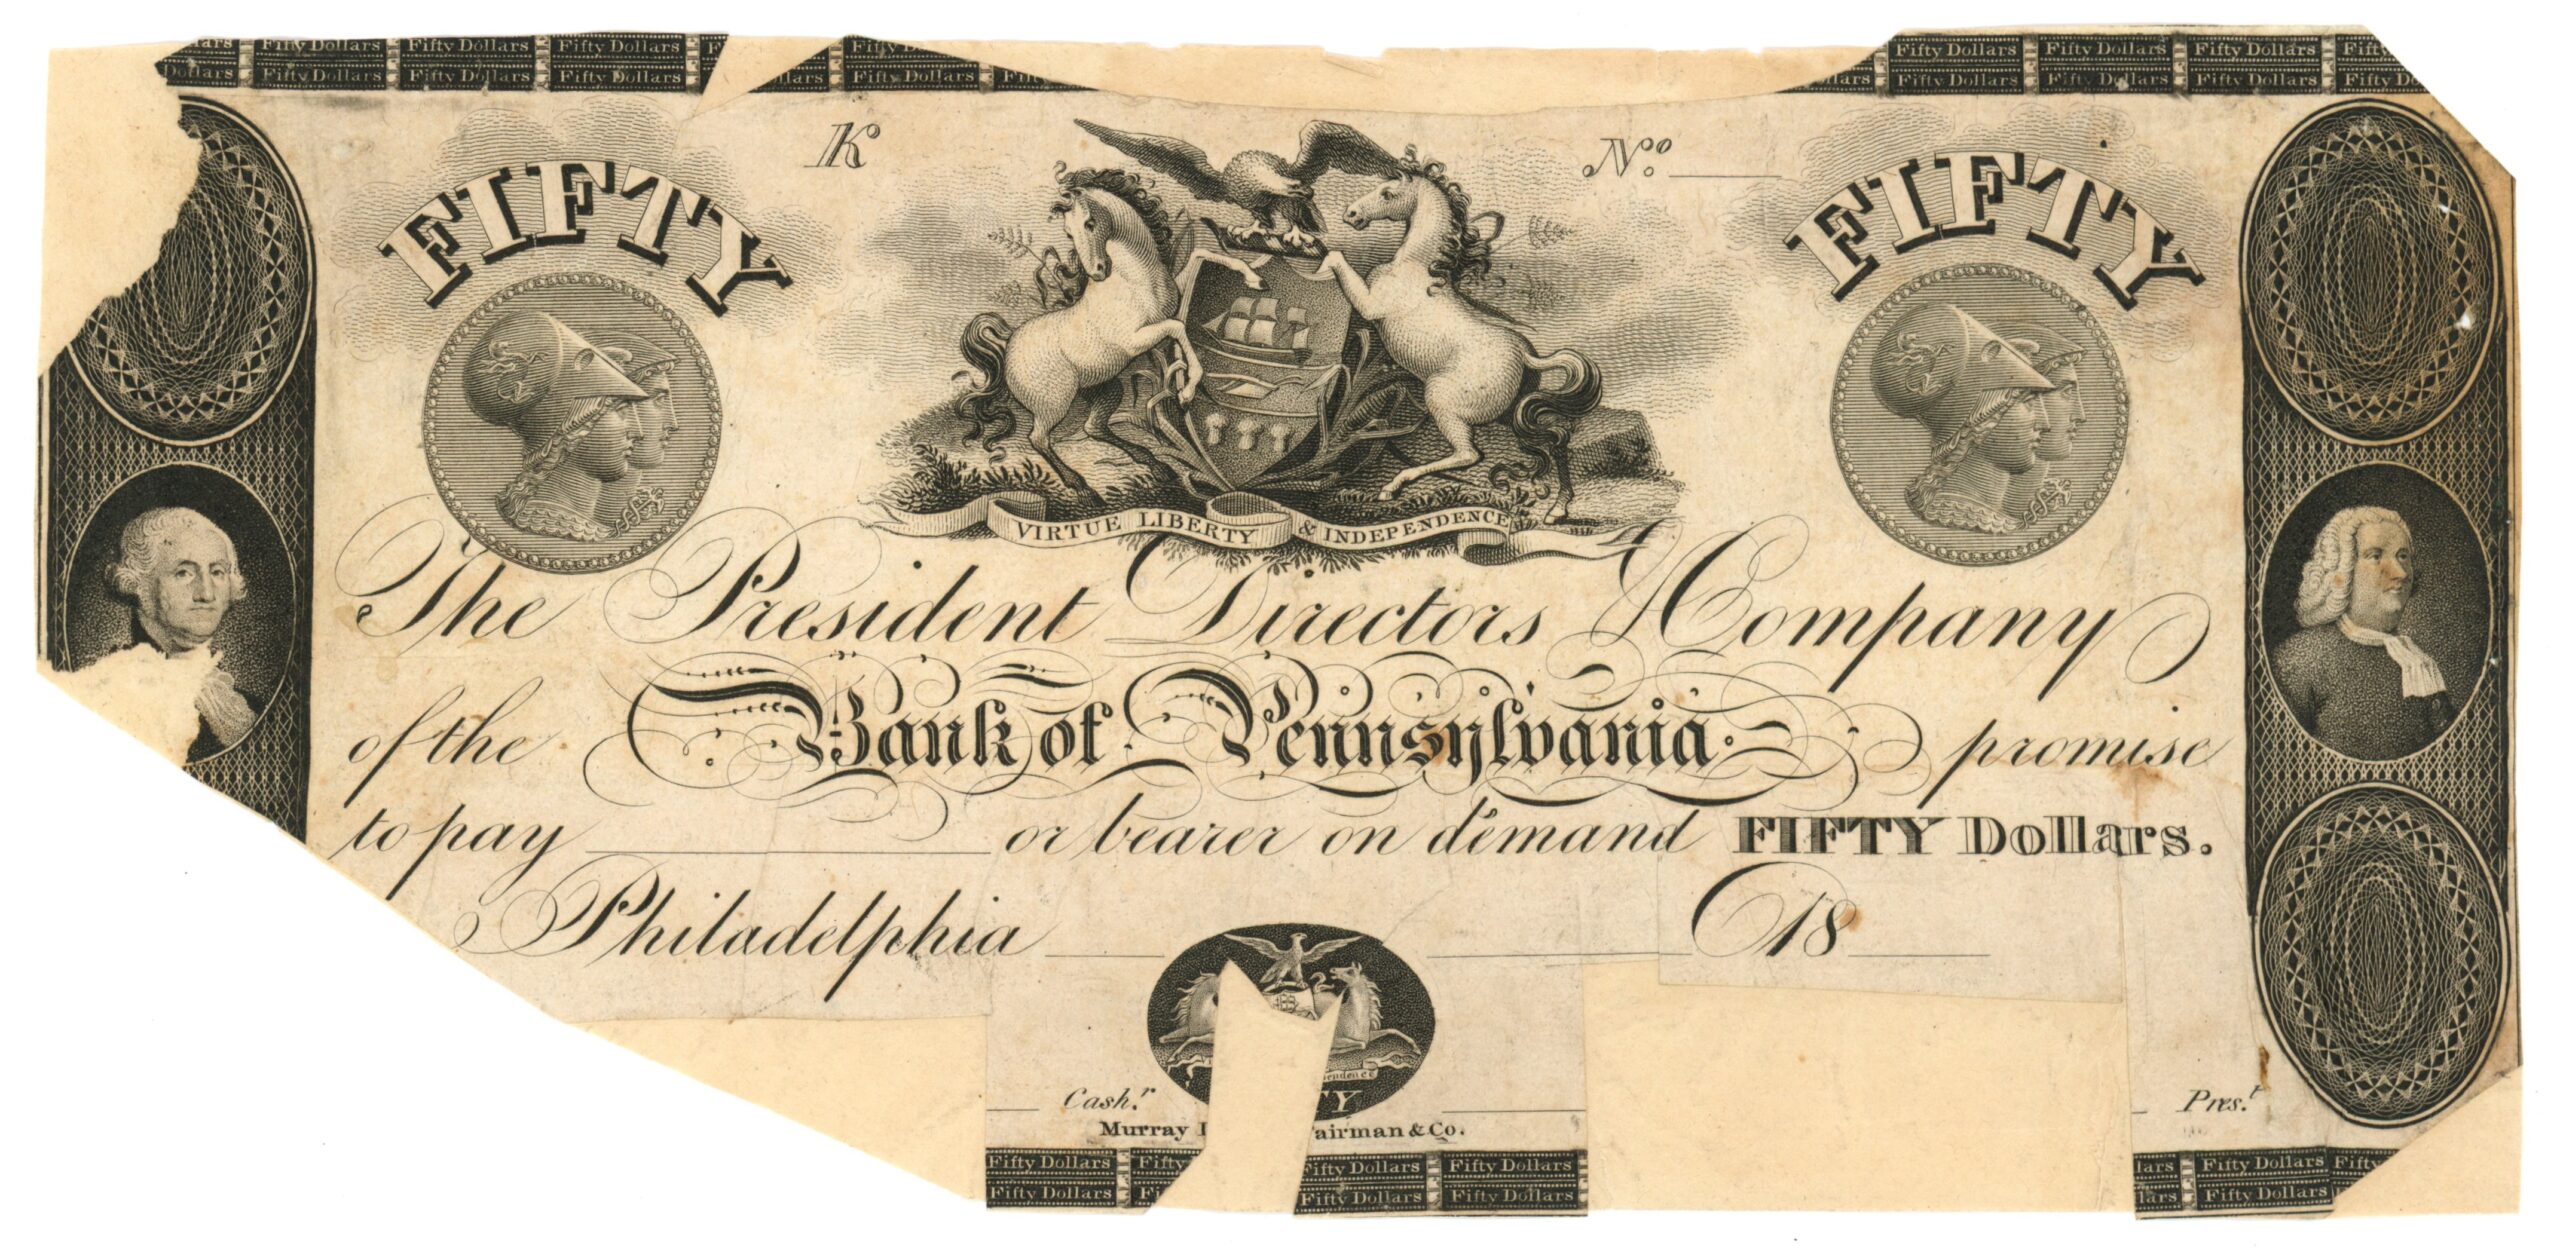 Fifty Dollars Fifty Dollars Fifty Dollars Fifty Dollars Fifty Dollars Fifty Dollars
Dollars Fifty Dollars Fifty Dollars Fifty Dollars Fifty Dollars Fifty Dollars Fifty Dollars Fifty Dollars
K
No.
FIFTY
FIFTY
VIRTUE LIBERTY & INDEPENDENCE
The President Directors & Company
of the Bank of Pennsylvania promise
to pay or bearer on demand FIFTY Dollars.
Philadelphia 18
Cash.r
Pres.t
Murray Fairman & Co.
Fifty Dollars Fifty Fifty Dollars Fifty Dollars Fifty Dollars Fifty
Fifty Dollars Fifty Dollars Fifty Dollars Fifty Dollars